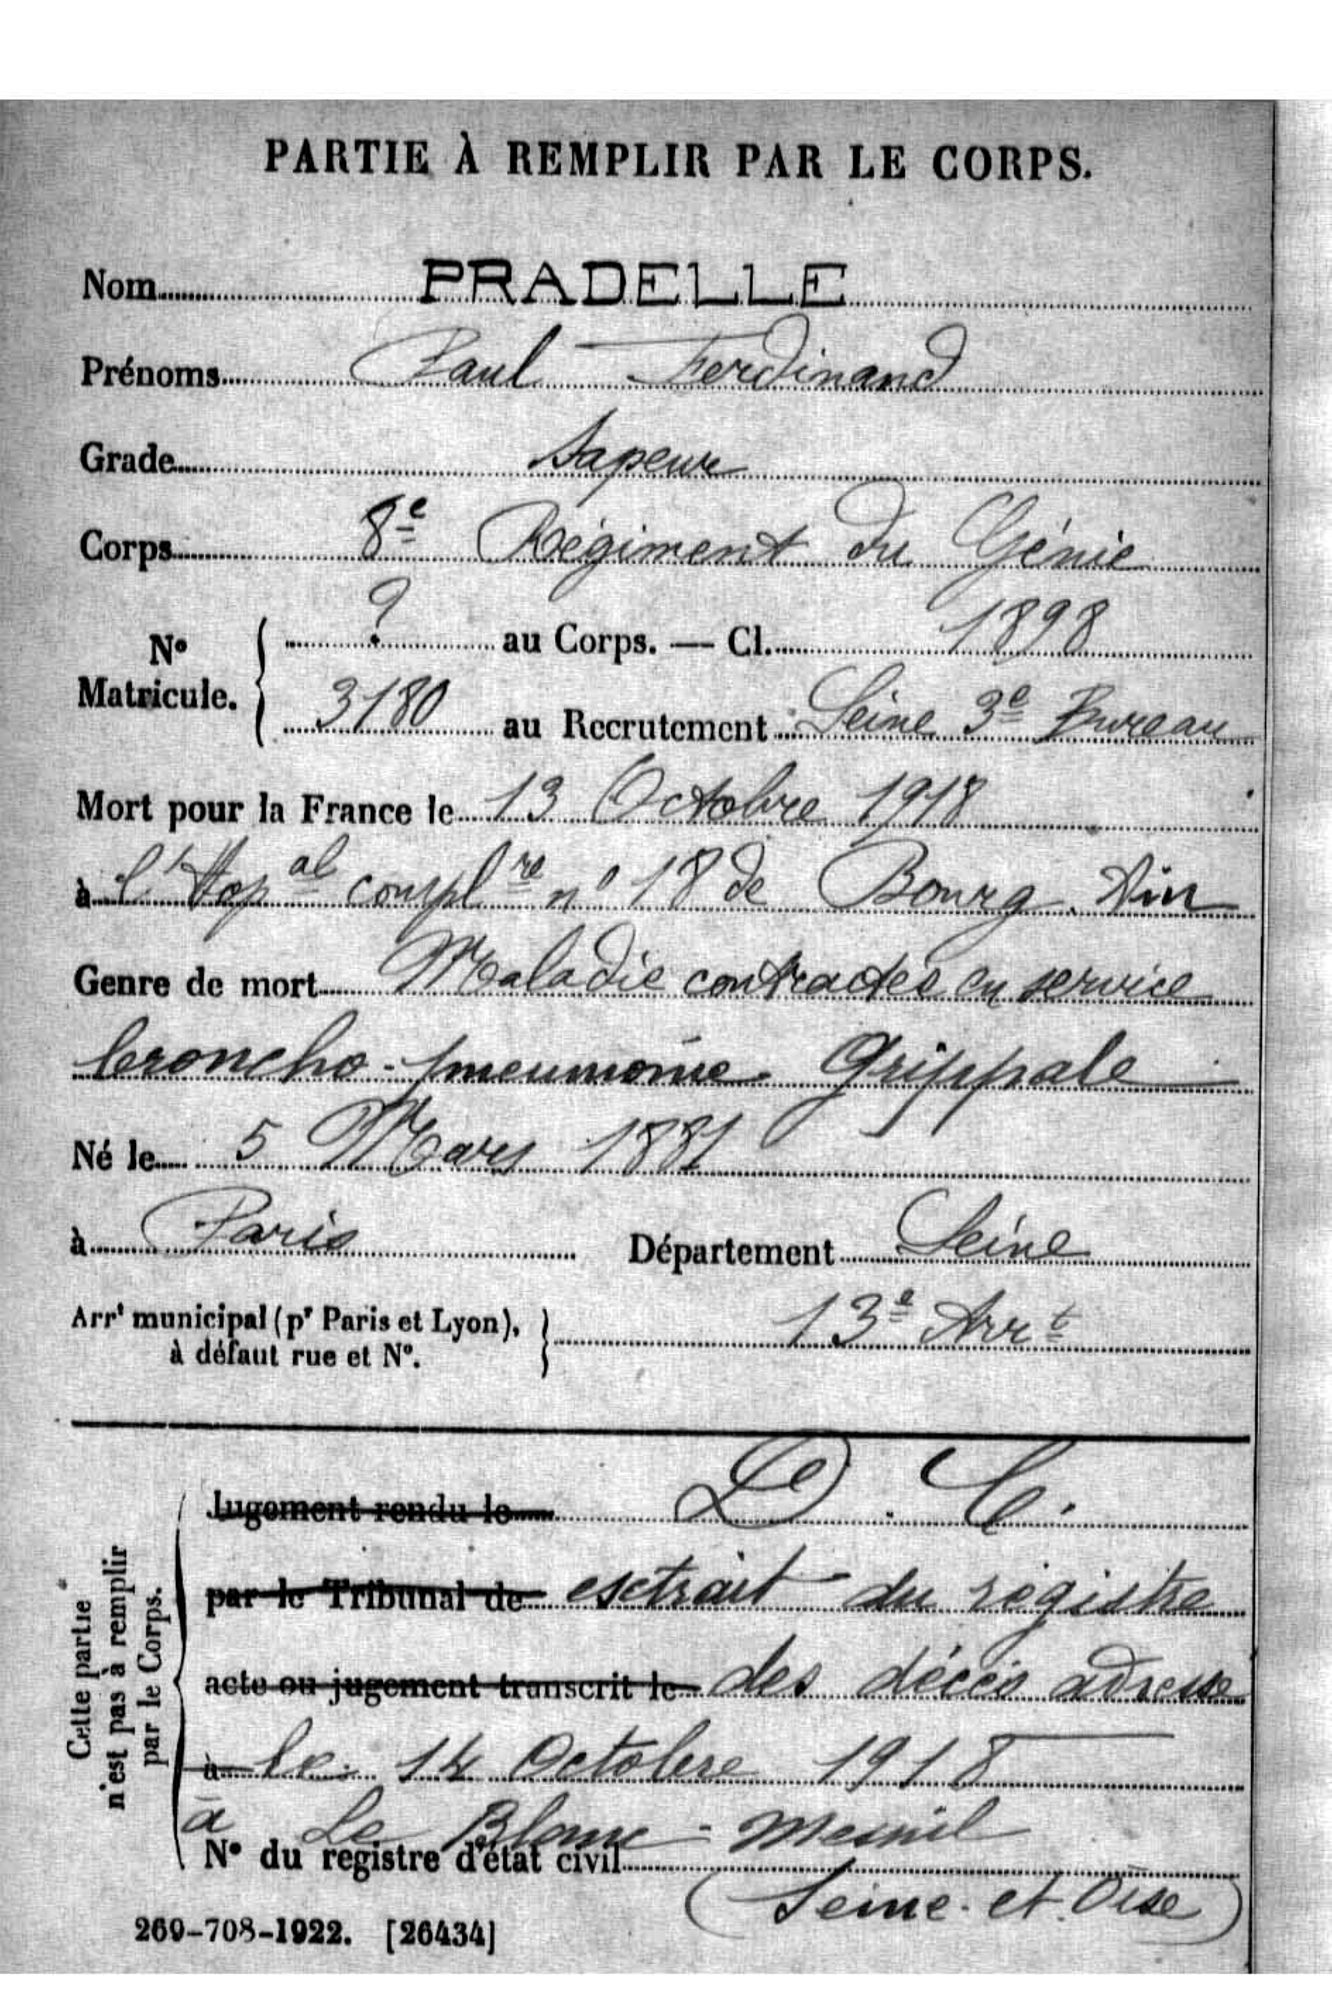 PARTIE À REMPLIR PAR LE CORPS.
Nom PRADELLE
Prénoms Paul Ferdinand
Grade Sapeur
Corps 8e Régiment du Génie
No Maticule. { ? au Corps. — Cl. 1898
3180 au Recrutement Seine 3e Bureau
Mort pour la France le 13 Octobre 1918
à l'Hopal complre no 18 de Bourg. Ain
Genre de mort Maladie contractée en service
broncho-pneumonie Grippale
Né le 5 Mars 1881
à Paris Département Seine
Arrt municipal (pr Paris et Lyon), à défaut rue et No. } 13e Arrt
Cette partie n'est pas à remplir par le Corps.
Jugement rendu le D. C.
par le Tribunal de extrait du registre
acte ou jugement transcrit le des décès adressé
à le 14 Octobre 1918
à Le Blanc-Mesnil
No du registre d'état civil
(Seine-et-Oise)
269-708-1922. [26434]